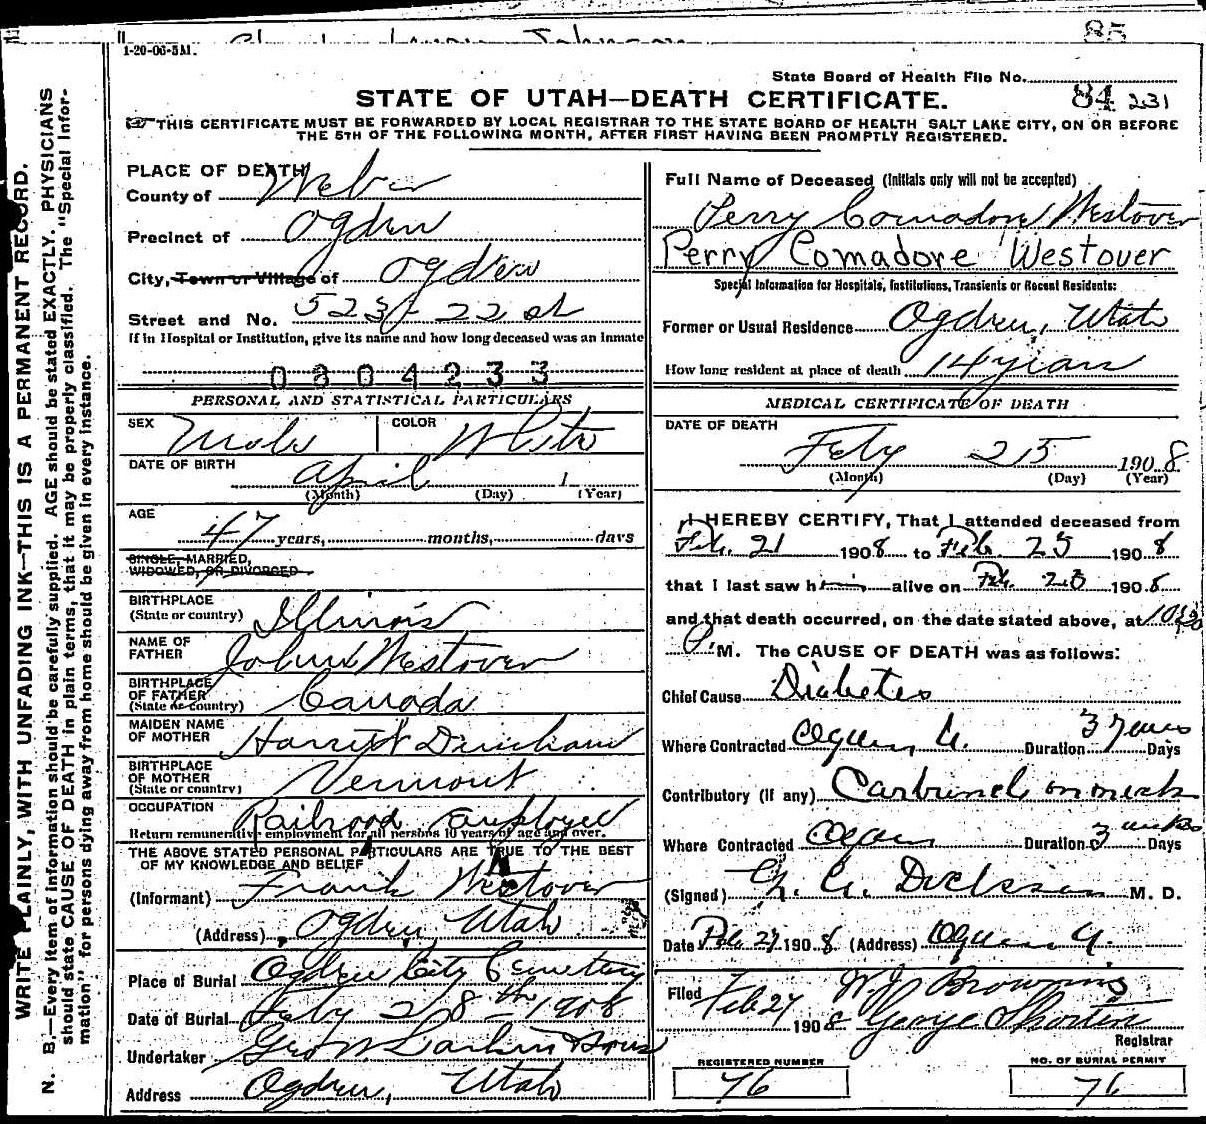 85
1-20-06-5M.
State Board of Health File No.
84 231
STATE OF UTAH—DEATH CERTIFICATE.
THIS CERTIFICATE MUST BE FORWARDED BY LOCAL REGISTRAR TO THE STATE BOARD OF HEALTH SALT LAKE CITY, ON OR BEFORE
THE 5TH OF THE FOLLOWING MONTH, AFTER FIRST HAVING BEEN PROMPTLY REGISTERED.
WRITE PLAINLY, WITH UNFADING INK—THIS IS A PERMANENT RECORD.
N. B.—Every item of information should be carefully supplied. AGE should be stated EXACTLY. PHYSICIANS
should state CAUSE OF DEATH in plain terms, that it may be properly classified. The "Special Infor-
mation" for persons dying away from home should be given in every instance.
PLACE OF DEATH
County of Weber
Precinct of Ogden
City, Town or Village of Ogden
Street and No. 523 22 st
If in Hospital or Institution, give its name and how long deceased was an inmate
0804233
PERSONAL AND STATISTICAL PARTICULARS
SEX Male COLOR White
DATE OF BIRTH April 1
(Month) (Day) (Year)
AGE
47 years, months, days
SINGLE, MARRIED,
WIDOWED, OR DIVORCED
BIRTHPLACE
(State or country) Illinois
NAME OF
FATHER John Westover
BIRTHPLACE
OF FATHER
(State or country) Canada
MAIDEN NAME
OF MOTHER Harriet
BIRTHPLACE
OF MOTHER
(State or country) Vermont
OCCUPATION Railroad Employee
Return remunerative employment for all persons 10 years of age and over.
THE ABOVE STATED PERSONAL PARTICULARS ARE TRUE TO THE BEST
OF MY KNOWLEDGE AND BELIEF
(Informant) Frank Westover
(Address) Ogden, Utah
Place of Burial Ogden City Cemetery
Date of Burial Feby 28th 1908
Undertaker Geo W. Larkin & Sons
Address Ogden, Utah
Full Name of Deceased (Initials only will not be accepted)
Perry Comadore Westover
Perry Comadore Westover
Special Information for Hospitals, Institutions, Transients or Recent Residents:
Former or Usual Residence Ogden, Utah
How long resident at place of death 14 years
MEDICAL CERTIFICATE OF DEATH
DATE OF DEATH
Feby 25 1908
(Month) (Day) (Year)
I HEREBY CERTIFY, That I attended deceased from
Feb. 21 1908 to Feb. 25 1908
that I last saw him alive on Feb. 25 1908
and that death occurred, on the date stated above, at
P. M. The CAUSE OF DEATH was as follows:
Chief Cause Diabetes
Where Contracted Ogden, U. Duration 3 years Days
Contributory (if any) Carbuncle on neck
Where Contracted Ogden Duration 3 weeks Days
(Signed) M. D.
Date Feb. 27 1908 (Address) Ogden U.
Filed Feb 27 1908 W. J. Browning
George Shorten
Registrar
REGISTERED NUMBER
76
NO. OF BURIAL PERMIT
76